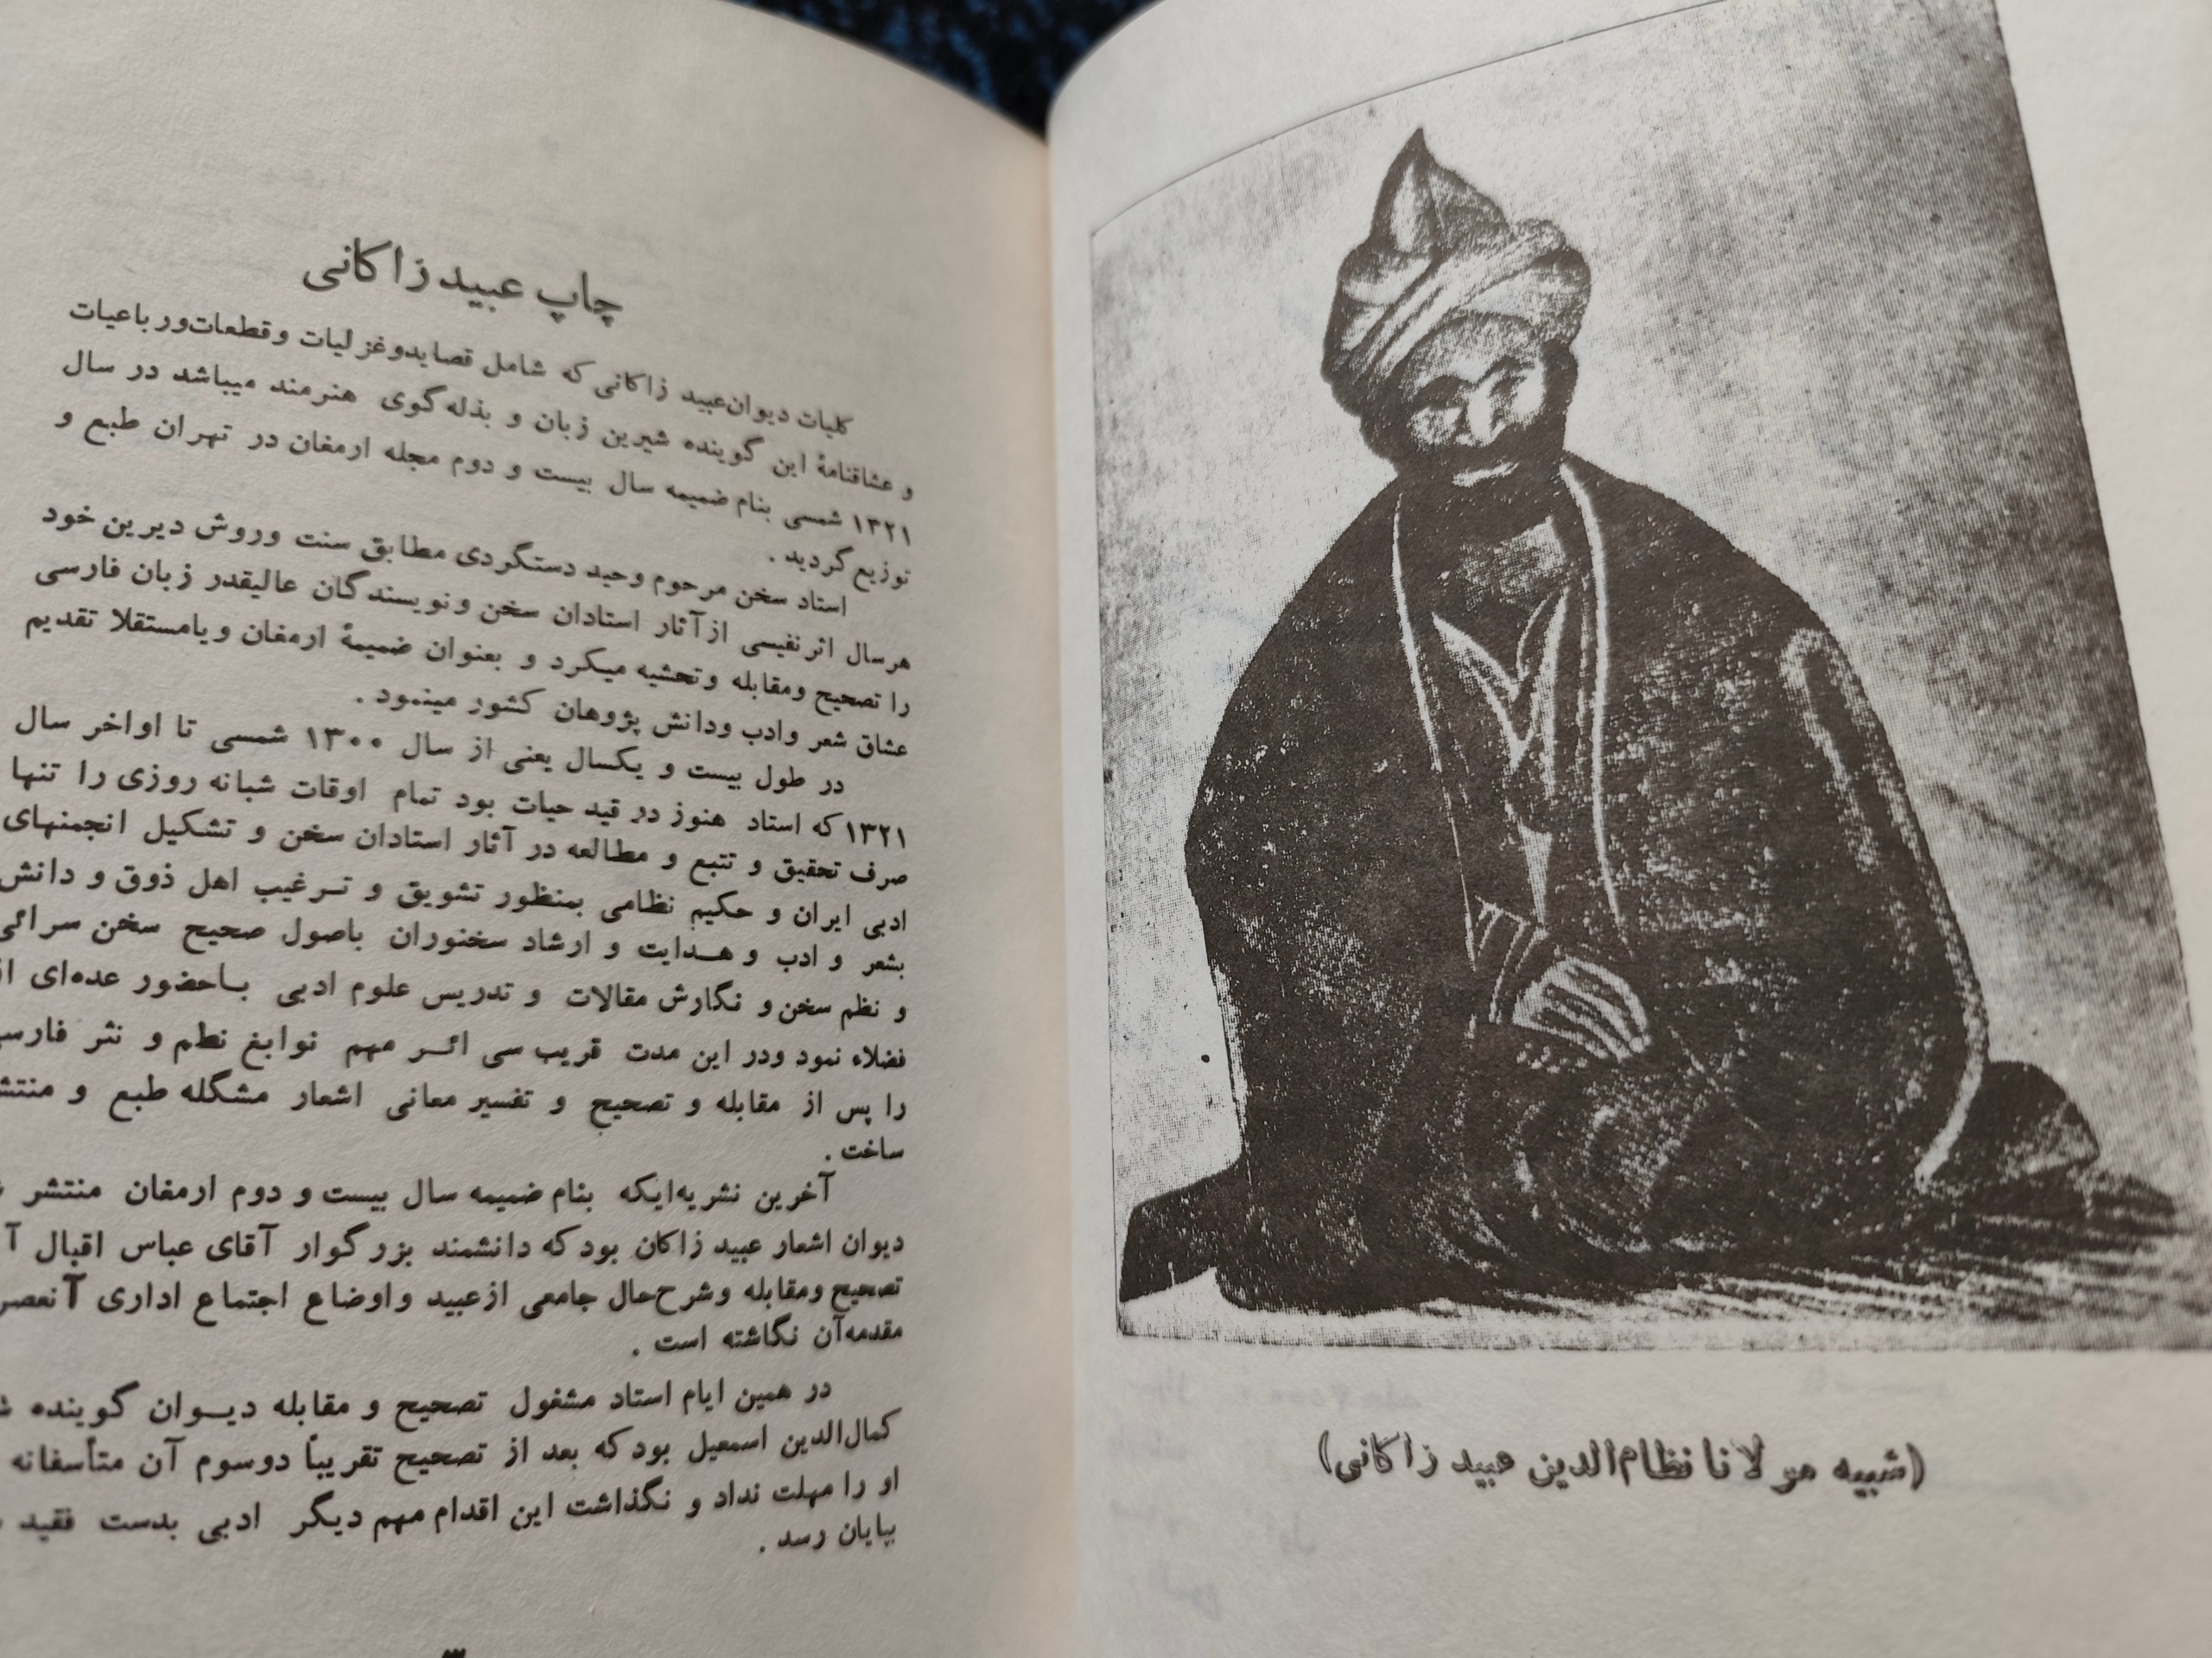 چاپ عبید زاکانی
کلیات دیوان‌عبید زاکانی که شامل قصایدوغزلیات وقطعات‌ورباعیات
و عشاقنامهٔ این گوینده شیرین زبان و بذله‌گوی هنرمند میباشد در سال
۱۳۲۱ شمسی بنام ضمیمه سال بیست و دوم مجله ارمغان در تهران طبع و
توزیع گردید .
استاد سخن مرحوم وحید دستگردی مطابق سنت وروش دیرین خود
هرسال اثرنفیسی ازآثار استادان سخن ونویسندگان عالیقدر زبان فارسی
را تصحیح ومقابله وتحشیه میکرد و بعنوان ضمیمهٔ ارمغان ویامستقلا تقدیم
عشاق شعر وادب ودانش پژوهان کشور مینمود .
در طول بیست و یکسال یعنی از سال ۱۳۰۰ شمسی تا اواخر سال
۱۳۲۱ که استاد هنوز در قید حیات بود تمام اوقات شبانه روزی را تنها
صرف تحقیق و تتبع و مطالعه در آثار استادان سخن و تشکیل انجمنهای
ادبی ایران و حکیم نظامی بمنظور تشویق و ترغیب اهل ذوق و دانش
بشعر و ادب و هدایت و ارشاد سخنوران باصول صحیح سخن سرائی
و نظم سخن و نگارش مقالات و تدریس علوم ادبی باحضور عده‌ای از
فضلاء نمود ودر این مدت قریب سی اثر مهم نوابغ نظم و نثر فارسی
را پس از مقابله و تصحیح و تفسیر معانی اشعار مشگله طبع و
ساخت .
آخرین نشریه‌ایکه بنام ضمیمه سال بیست و دوم ارمغان منتشر
دیوان اشعار عبید زاکان بود که دانشمند بزرگوار آقای عباس اقبال
تصحیح ومقابله وشرح‌حال جامعی ازعبید واوضاع اجتماع اداری آنعصر
مقدمه‌آن نگاشته است .
در همین ایام استاد مشغول تصحیح و مقابله دیوان گوینده
کمال‌الدین اسمعیل بود که بعد از تصحیح تقریباً دوسوم آن متأسفانه
او را مهلت نداد و نگذاشت این اقدام مهم دیگر ادبی بدست فقید
بپایان رسد .
(شبیه مولانا نظام‌الدین عبید زاکانی)